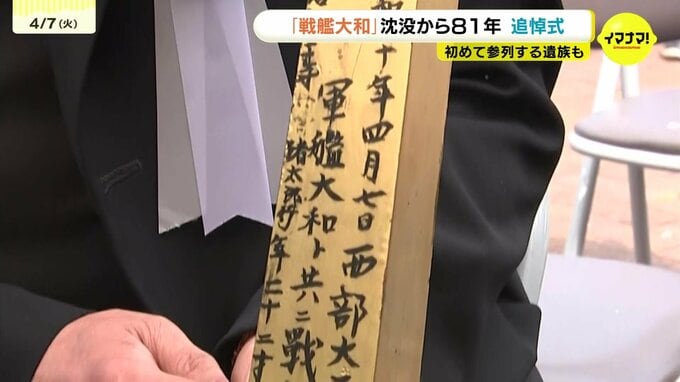 4/7(火)
「戦艦大和」沈没から81年 追悼式
初めて参列する遺族も
イマナマ!
十年四月七日西部大
軍艦大和ト共ニ戦
太郎 行年二十二才